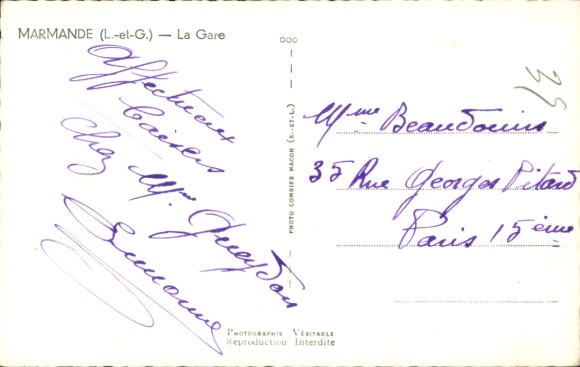 MARMANDE (L.-et-G.) — La Gare
Affectueux
baisers
chez Mme Gueydon
Simonne
PHOTO COMBIER MACON (S.-ET-L.)
35
Mme Beaudouin
35 Rue Georges Pitard
Paris 15ème
PHOTOGRAPHIE VÉRITABLE
Reproduction Interdite